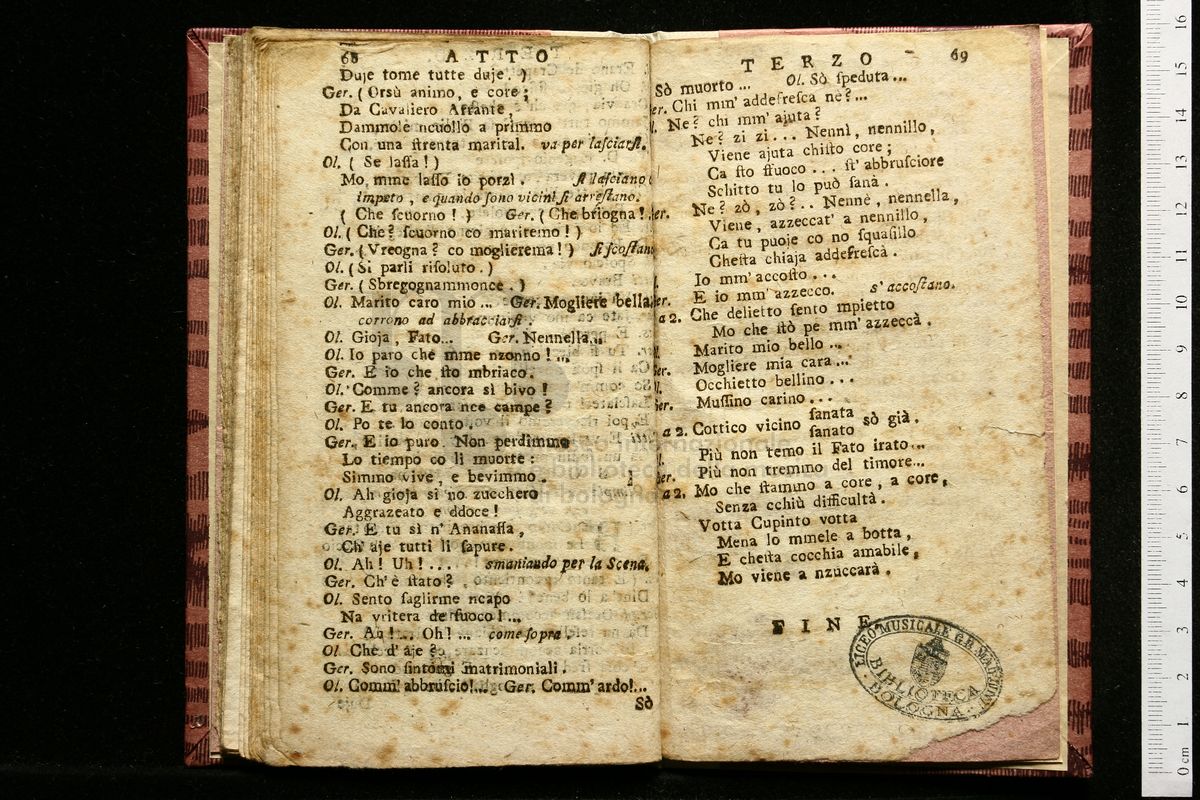 68 ATTO
Duje tome tutte duje. )
Ger. ( Orsù animo, e core ;
Da Cavaliero Affante,
Dammolè ncuollo a primmo
Con una ſtrenta marital. va per laſciarſi.
Ol. ( Se laſſa ! )
Mo, mme laſſo io porzì. ſi laſciano
impeto, e quando ſono vicini ſi arreſtano.
( Che ſcuorno ! ) Ger. ( Che briogna !
Ol. ( Che ? ſcuorno co maritemo ! )
Ger. ( Vreogna ? co moglierema ! ) ſi ſcoſtan
Ol. ( Si parli riſoluto. )
Ger. ( Sbregognammonce. )
Ol. Marito caro mio ... Ger. Mogliere bella
corrono ad abbracciarſi.
Ol. Gioja, Fato... Ger. Nennella...
Ol. Io paro che mme nzonno ! ...
Ger. E io che ſto mbriaco.
Ol. Comme ? ancora sì bivo !
Ger. E tu ancora nce campe ?
Ol. Po te lo conto.
Ger. E io puro. Non perdimmo
Lo tiempo co li muorte :
Simmo vive, e bevimmo.
Ol. Ah gioja si no zucchero
Aggrazeato e ddoce !
Ger. E tu sì n' Ananaſſa,
Ch' aje tutti li ſapure.
Ol. Ah ! Uh ! ... smaniando per la Scena.
Ger. Ch' è ſtato ?
Ol. Sento ſaglirme ncapo
Na vritera de ffuoco ! ...
Ger. Au ! ... Oh ! ... come ſopra.
Ol. Che d' aje ?
Ger. Sono ſintomi matrimoniali.
Ol. Comm' abbruſcio !... Ger. Comm' ardo !...
Sò
TERZO 69
Sò muorto ... Ol. Sò ſpeduta ...
er. Chi mm' addefreſca nè ? ...
l. Ne ? chi mm' ajuta ?
Ne ? zi zi ... Nennì, nennillo,
Viene ajuta chiſto core ;
Ca ſto ffuoco ... ſt' abbruſciore
Schitto tu lo può ſanà.
er. Ne ? zò, zò ? .. Nennè, nennella,
Viene, azzeccat' a nennillo,
Ca tu puoje co no ſquaſillo
Cheſta chiaja addefreſcà.
Io mm' accoſto ...
er. E io mm' azzecco. s' accoſtano.
a 2. Che delietto ſento mpietto
Mo che ſtò pe mm' azzeccà.
l. Marito mio bello ...
er. Mogliere mia cara ...
l. Occhietto bellino ...
er. Muſſino carino ...
a 2. Cottico vicino ſanata ſanato sò già.
l. Più non temo il Fato irato ...
er. Più non tremmo del timore ...
a 2. Mo che ſtammo a core, a core,
Senza cchiù difficultà.
Votta Cupinto votta
Mena lo mmele a botta,
E cheſta cocchia amabile,
Mo viene a nzuccarà.
FINE.
LICEO MUSICALE G.B. MARTINI
BIBLIOTECA
BOLOGNA